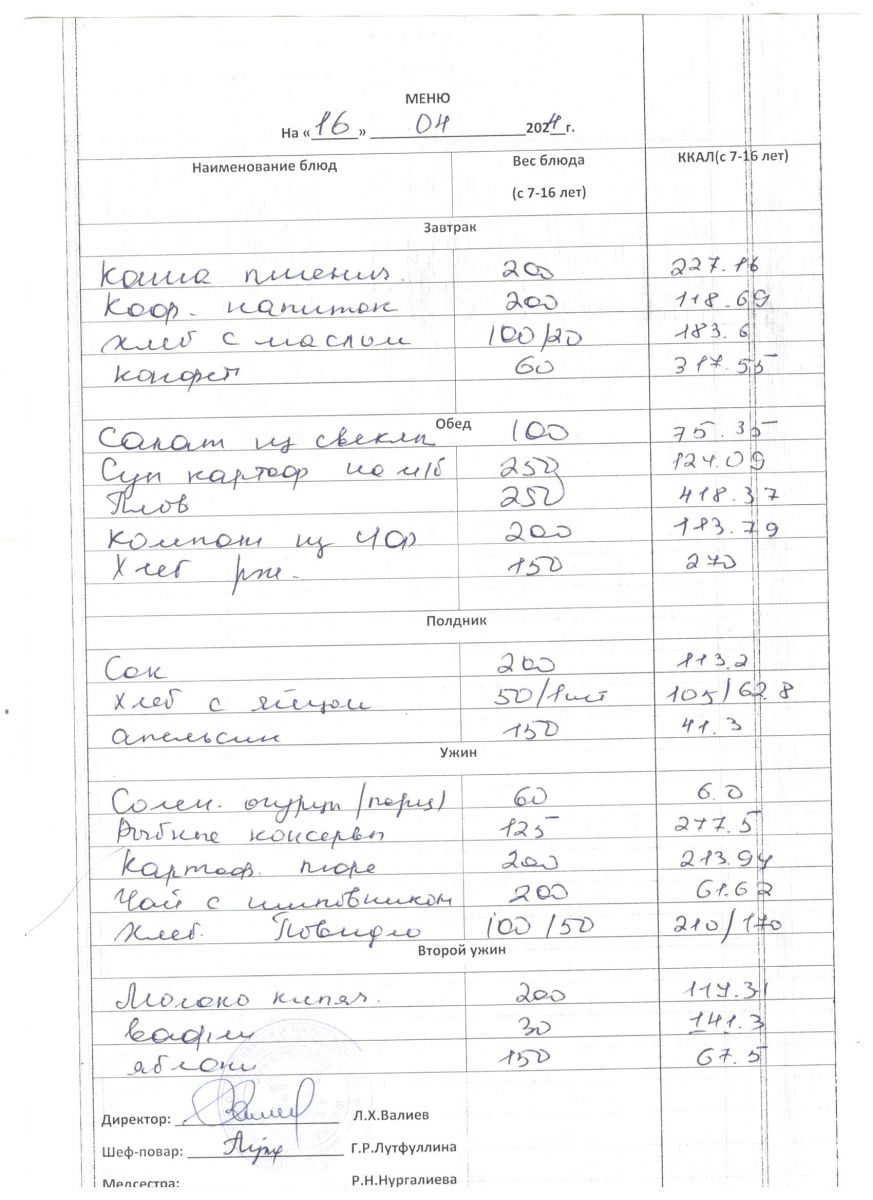 МЕНЮ
На «16» 04 2024 г.
Наименование блюд Вес блюда (с 7-16 лет) ККАЛ(с 7-16 лет)
Завтрак
Каша пшенич. 200 227.16
Коф. напиток 200 118.69
Хлеб с маслом 100/20 183.6
конфет 60 317.55
Обед
Салат из свеклы 100 75.35
Суп картоф на м/б 250 124.09
Плов 250 418.37
Компот из ЧФ 200 113.79
Хлеб рж. 150 270
Полдник
Сок 200 113.2
Хлеб с яйцом 50/1шт 105/62.8
апельсин 150 41.3
Ужин
Солен. огурцы 60 6.0
Рыбные консервы 125 277.5
Картоф. пюре 200 213.94
Чай с шиповником 200 61.62
Хлеб. Повидло 100/50 210/170
Второй ужин
Молоко кипяч. 200 119.31
вафли 30 141.3
яблоки 150 67.5
Директор: Л.Х.Валиев
Шеф-повар: Г.Р.Лутфуллина
Медсестра: Р.Н.Нургалиева